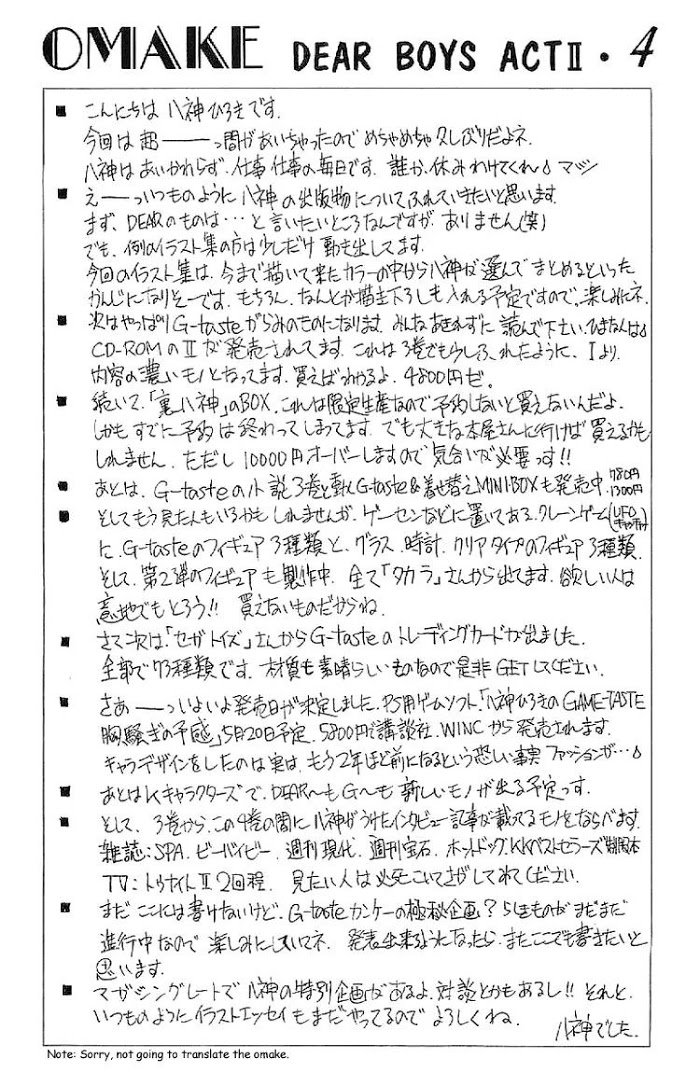 OMAKE DEAR BOYS ACTⅡ・4
■ こんにちは 八神ひろきです.
今回は 超――っ間があいちゃったので めちゃめちゃ久しぶりだよネ.
八神はあいかわらず、仕事仕事の毎日です. 誰か、休みわけてくれ マジ
■ え――っいつものように 八神の出版物についてふれていきたいと思います.
まず、DEARのものは…と言いたいところなんですが、ありません(笑)
でも、例のイラスト集の方は少しだけ 動き出してます.
今回のイラスト集は、今まで描いて来たカラーの中から八神が選んで まとめるといった
かんじになりそーです. もちろん、なんとか描き下ろしも入れる予定ですので、楽しみにネ.
■ 次はやっぱりG-tasteがらみのものになります. みんなあきれずに 読んで下さい.
CD-ROMのⅡが発売されてます. これは3巻でも少しふれたように、Ⅰより、
内容の濃いモノとなってます. 買えばわかるよ. 4800円ゼ.
■ 続いて、「裏八神」のBOX. これは限定生産なので予約しないと買えないんだよ.
しかもすでに予約は終わってしまってます. でも大きな本屋さんに行けば買えるかも
しれません. ただし 10000円オーバーしますので 気合いが必要っす!!
■ あとは、G-tasteの小説3巻と動くG-taste&着せ替えMINI-BOXも発売中. 780円 1300円
■ そしてもう見た人もいるかもしれませんが、ゲーセンなどに置いてある、クレーンゲーム(UFOキャッチャー)
に、G-tasteのフィギュア3種類と、グラス、時計、クリアタイプのフィギュア3種類.
そして、第2弾のフィギュアも製作中. 全て「タカラ」さんから出てます. 欲しい人は
意地でもとろう!! 買えないものだからね.
■ さて次は、「セガトイズ」さんからG-tasteのトレーディングカードが出ました.
全部で73種類です. 材質も素晴らしいものなので是非GETしてください.
■ さあ――っいよいよ発売日が決定しました. PS用ゲームソフト.「八神ひろきのGAME-TASTE
胸騒ぎの予感」5月20日予定. 5800円で講談社.WINCから発売されます.
キャラデザインをしたのは実は、もう2年ほど前になるという恐しい事実 ファッションが…
■ あとはKキャラクターズで、DEAR〜もG〜も 新しいモノが出る予定っす.
■ そして、3巻から、この4巻の間に八神がうけたインタビュー記事が載ってるモノをならべます.
雑誌:SPA. ビービイビー. 週刊現代. 週刊宝石. ホットドッグ. KKベストセラーズ
TV:トゥナイトⅡ2回程. 見たい人は必死こいてさがしてみてください.
■ まだここには書けないけど、G-tasteカンケーの極秘企画?らしきものがまだまだ
進行中なので 楽しみにしていてネ. 発表出来るようになったら、またここでも書きたいと
思います.
■ マガジングレートで 八神の特別企画があるよ. 対談とかもあるし!! それと、
いつものようにイラストエッセイもまだやってるので よろしくね.
八神でした.
Note: Sorry, not going to translate the omake.